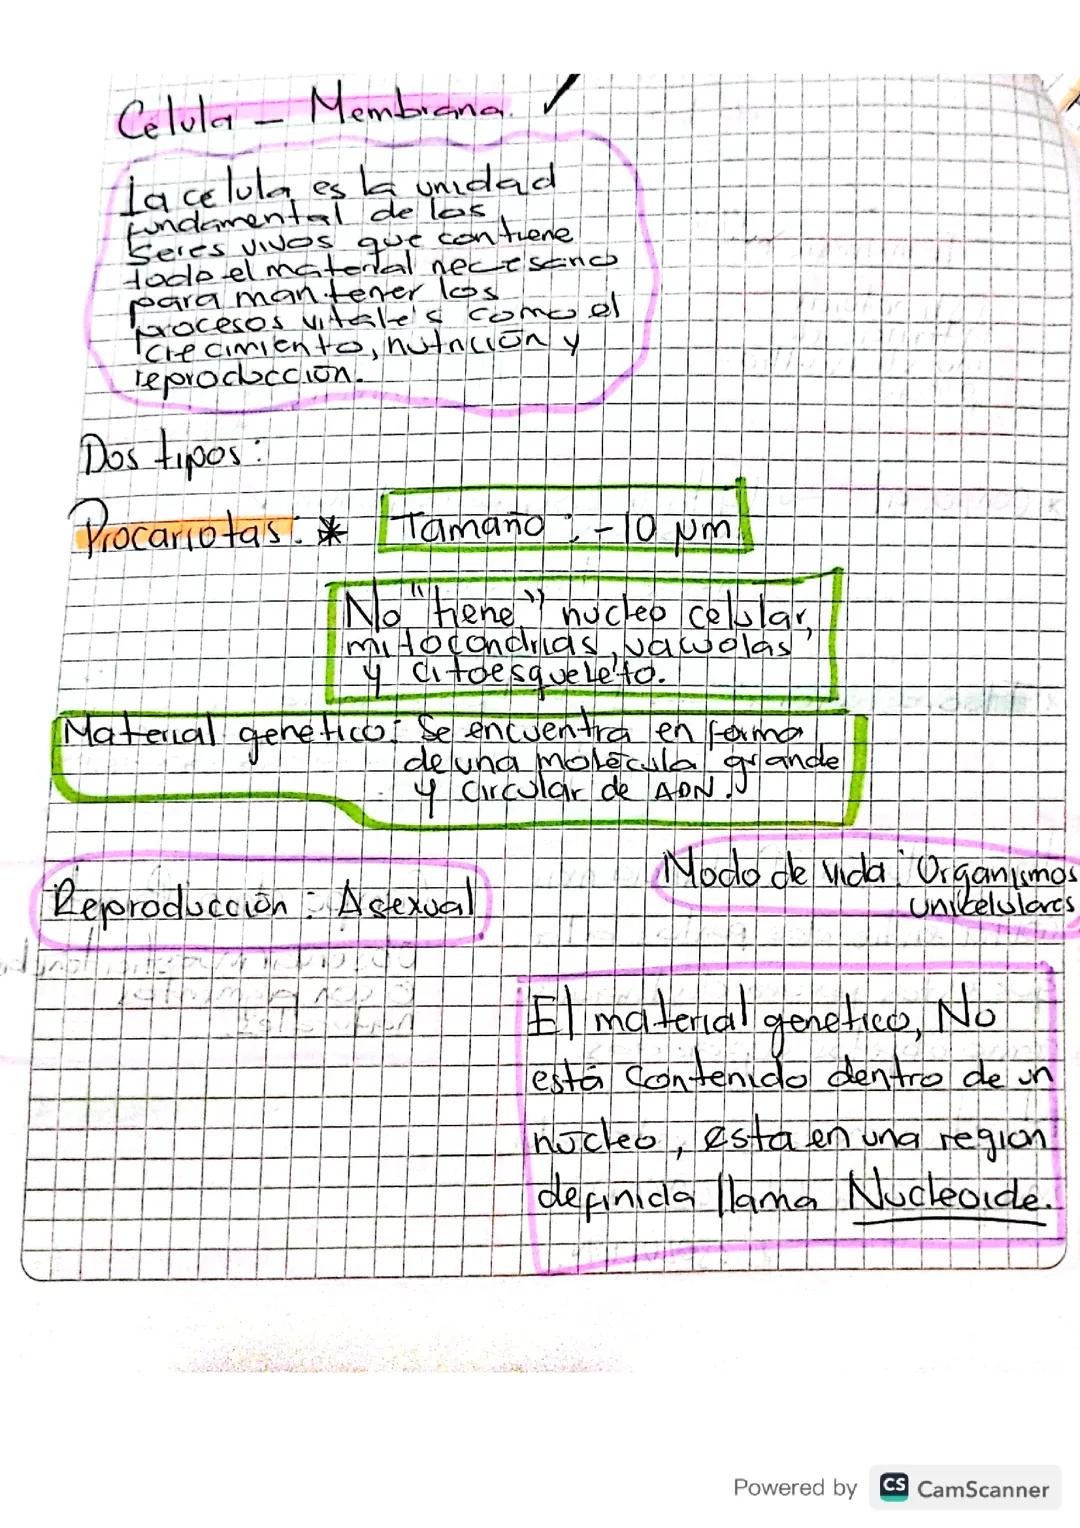 Celula - Membrana.
La celula es la unidad
fundamental de los
seres vivos que contiene
todo el material necesario
para mantener los
procesos vitales como el
crecimiento, nutrición y
reproducción.
Dos tipos:
Procariotas: * Tamaño: -10 µm
No "tiene" nucleo celular,
mitocondrias, vacuolas
y citoesqueleto.
Material genetico: Se encuentra en forma
de una molécula grande
y circular de ADN.
Modo de vida: Organismos
Unicelulares
Reproducción: Asexual
El material genetico, No
está contenido dentro de un
núcleo, esta en una region
definida llama Nucleoide.
Powered by CS CamScanner